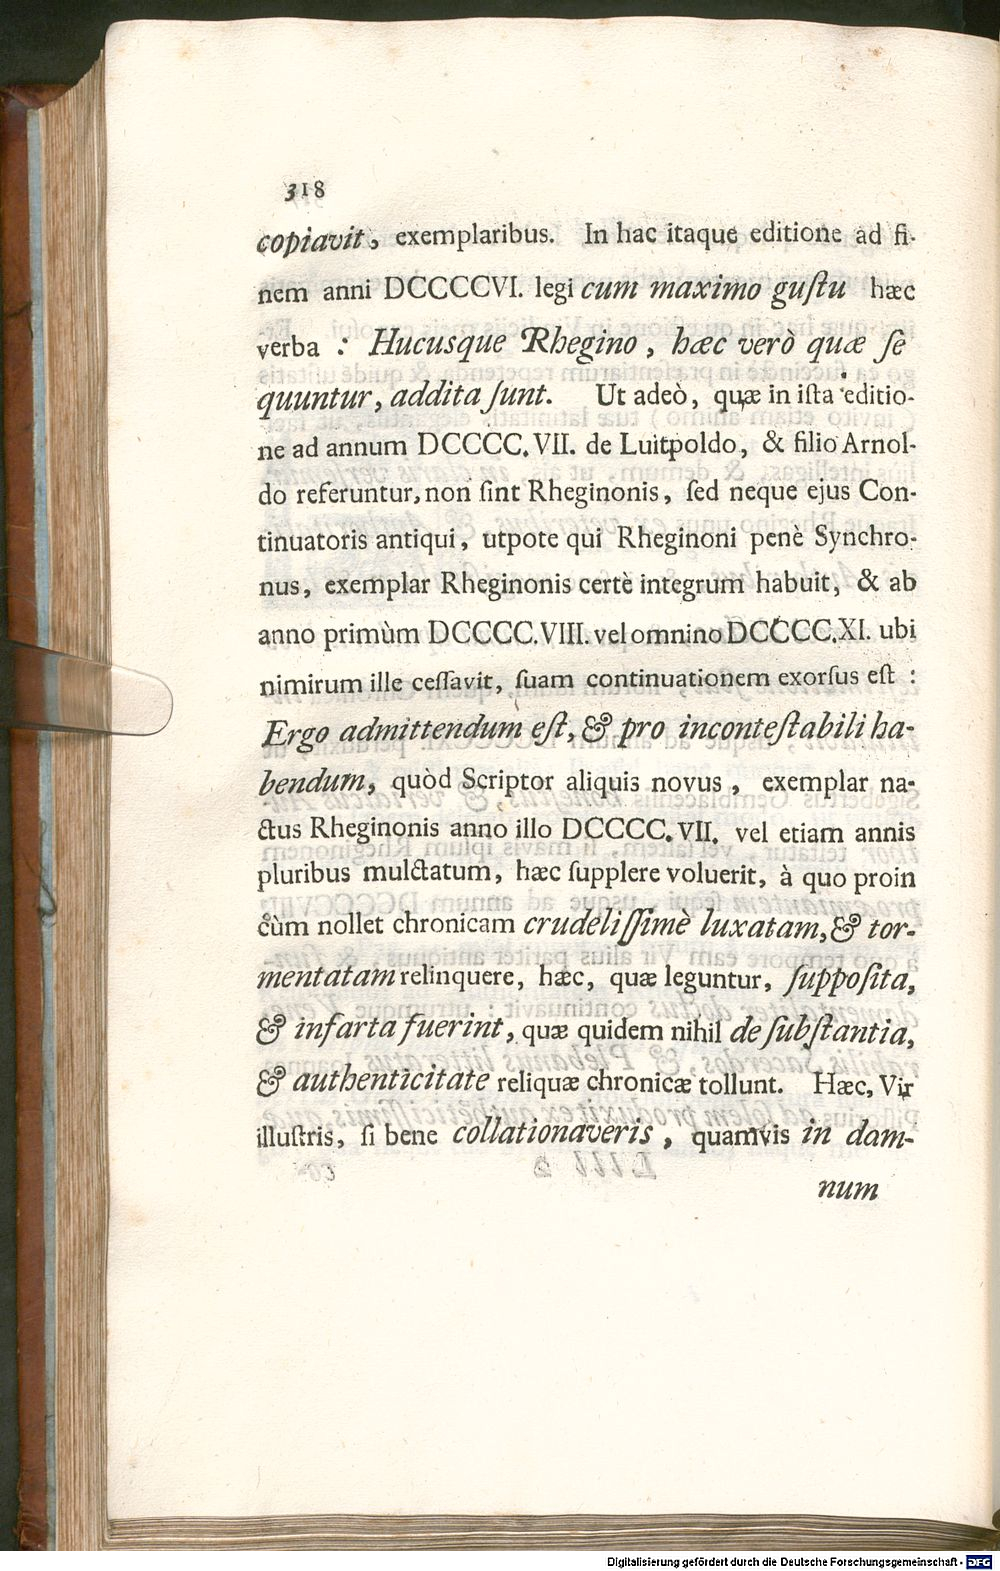 318
copiavit, exemplaribus. In hac itaque editione ad fi-
nem anni DCCCCVI. legi cum maximo guſtu hæc
verba : Hucusque Rhegino, hæc verò quæ ſe
quuntur, addita ſunt. Ut adeò, quæ in iſta editio-
ne ad annum DCCCC. VII. de Luitpoldo, & filio Arnol-
do referuntur, non ſint Rheginonis, ſed neque ejus Con-
tinuatoris antiqui, utpote qui Rheginoni penè Synchro-
nus, exemplar Rheginonis certè integrum habuit, & ab
anno primùm DCCCC. VIII. vel omnino DCCCC. XI. ubi
nimirum ille ceſſavit, ſuam continuationem exorſus eſt :
Ergo admittendum eſt, & pro inconteſtabili ha-
bendum, quòd Scriptor aliquis novus, exemplar na-
ctus Rheginonis anno illo DCCCC. VII. vel etiam annis
pluribus mulctatum, hæc ſupplere voluerit, à quo proin
cùm nollet chronicam crudeliſſimè luxatam, & tor-
mentatam relinquere, hæc, quæ leguntur, ſuppoſita,
& infarta fuerint, quæ quidem nihil de ſubſtantia,
& authenticitate reliquæ chronicæ tollunt. Hæc, Vir
illuſtris, ſi bene collationaveris, quamvis in dam-
num
Digitalisierung gefördert durch die Deutsche Forschungsgemeinschaft - DFG